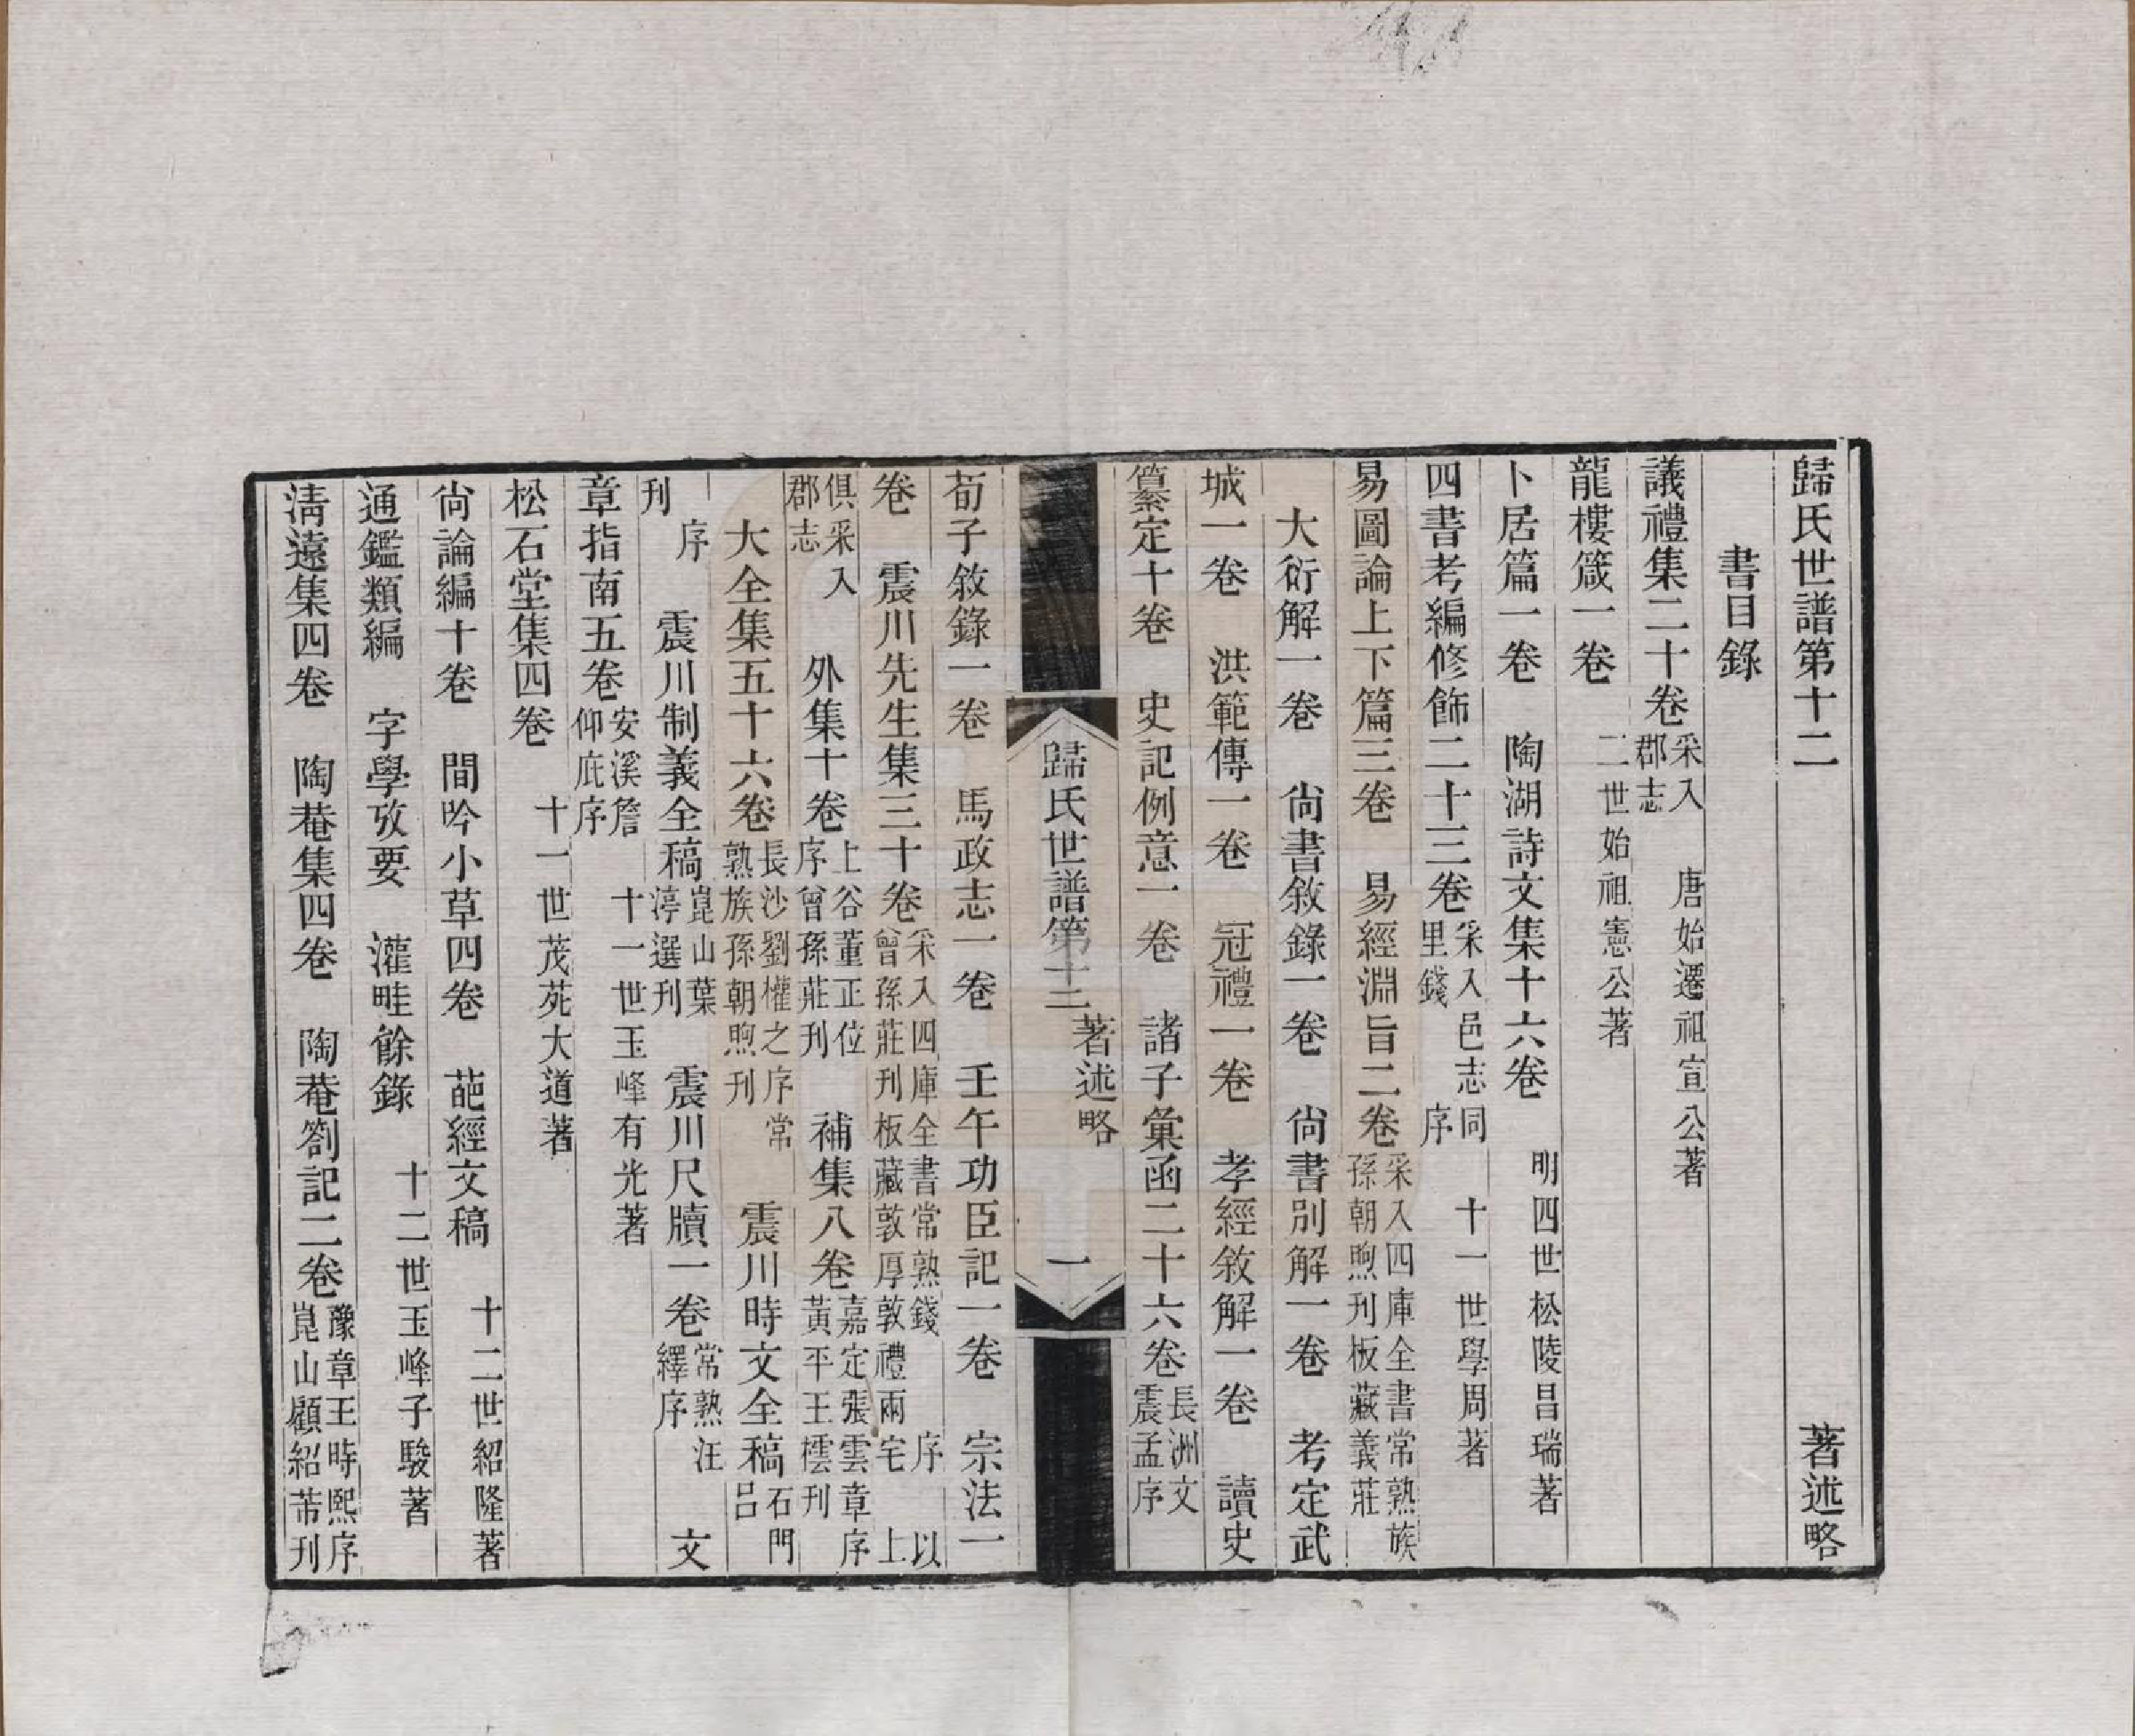 歸氏世譜第十二　著述略
書目錄
議禮集二十卷　采入郡志　唐始遷祖宣公著
龍樓箴一卷　二世始祖憲公著
卜居篇一卷　陶湖詩文集十六卷　明四世松陵昌瑞著
四書考編修飾二十三卷　采入邑志同里錢序　十一世學周著
易圖論上下篇三卷　易經淵旨二卷　采入四庫全書常熟族孫朝煦刊板藏義莊
大衍解一卷　尙書敘錄一卷　尙書別解一卷　考定武
城一卷　洪範傳一卷　冠禮一卷　孝經敘解一卷　讀史
纂定十卷　史記例意一卷　諸子彙函二十六卷　長洲文震孟序
歸氏世譜第十二　著述略　一
荀子敘錄一卷　馬政志一卷　壬午功臣記一卷　宗法一
卷　震川先生集三十卷　采入四庫全書常熟錢序曾孫莊刊板藏敦厚敦禮兩宅　以上
俱采入郡志　外集十卷　上谷董正位序曾孫莊刊　補集八卷　嘉定張雲章序黃平王橒刊
大全集五十六卷　長沙劉權之序常熟族孫朝煦刊　震川時文全稿　石門呂
序刊　震川制義全稿　崑山葉渟選刊　震川尺牘一卷　常熟汪繹序　文
章指南五卷　安溪詹仰庇序　十一世玉峰有光著
松石堂集四卷　十一世茂苑大道著
尙論編十卷　間吟小草四卷　葩經文稿　十二世紹隆著
通鑑類編　字學攷要　灌畦餘錄　十二世玉峰子駿著
淸遠集四卷　陶菴集四卷　陶菴劄記二卷　豫章王時熙序崑山顧紹芾刊